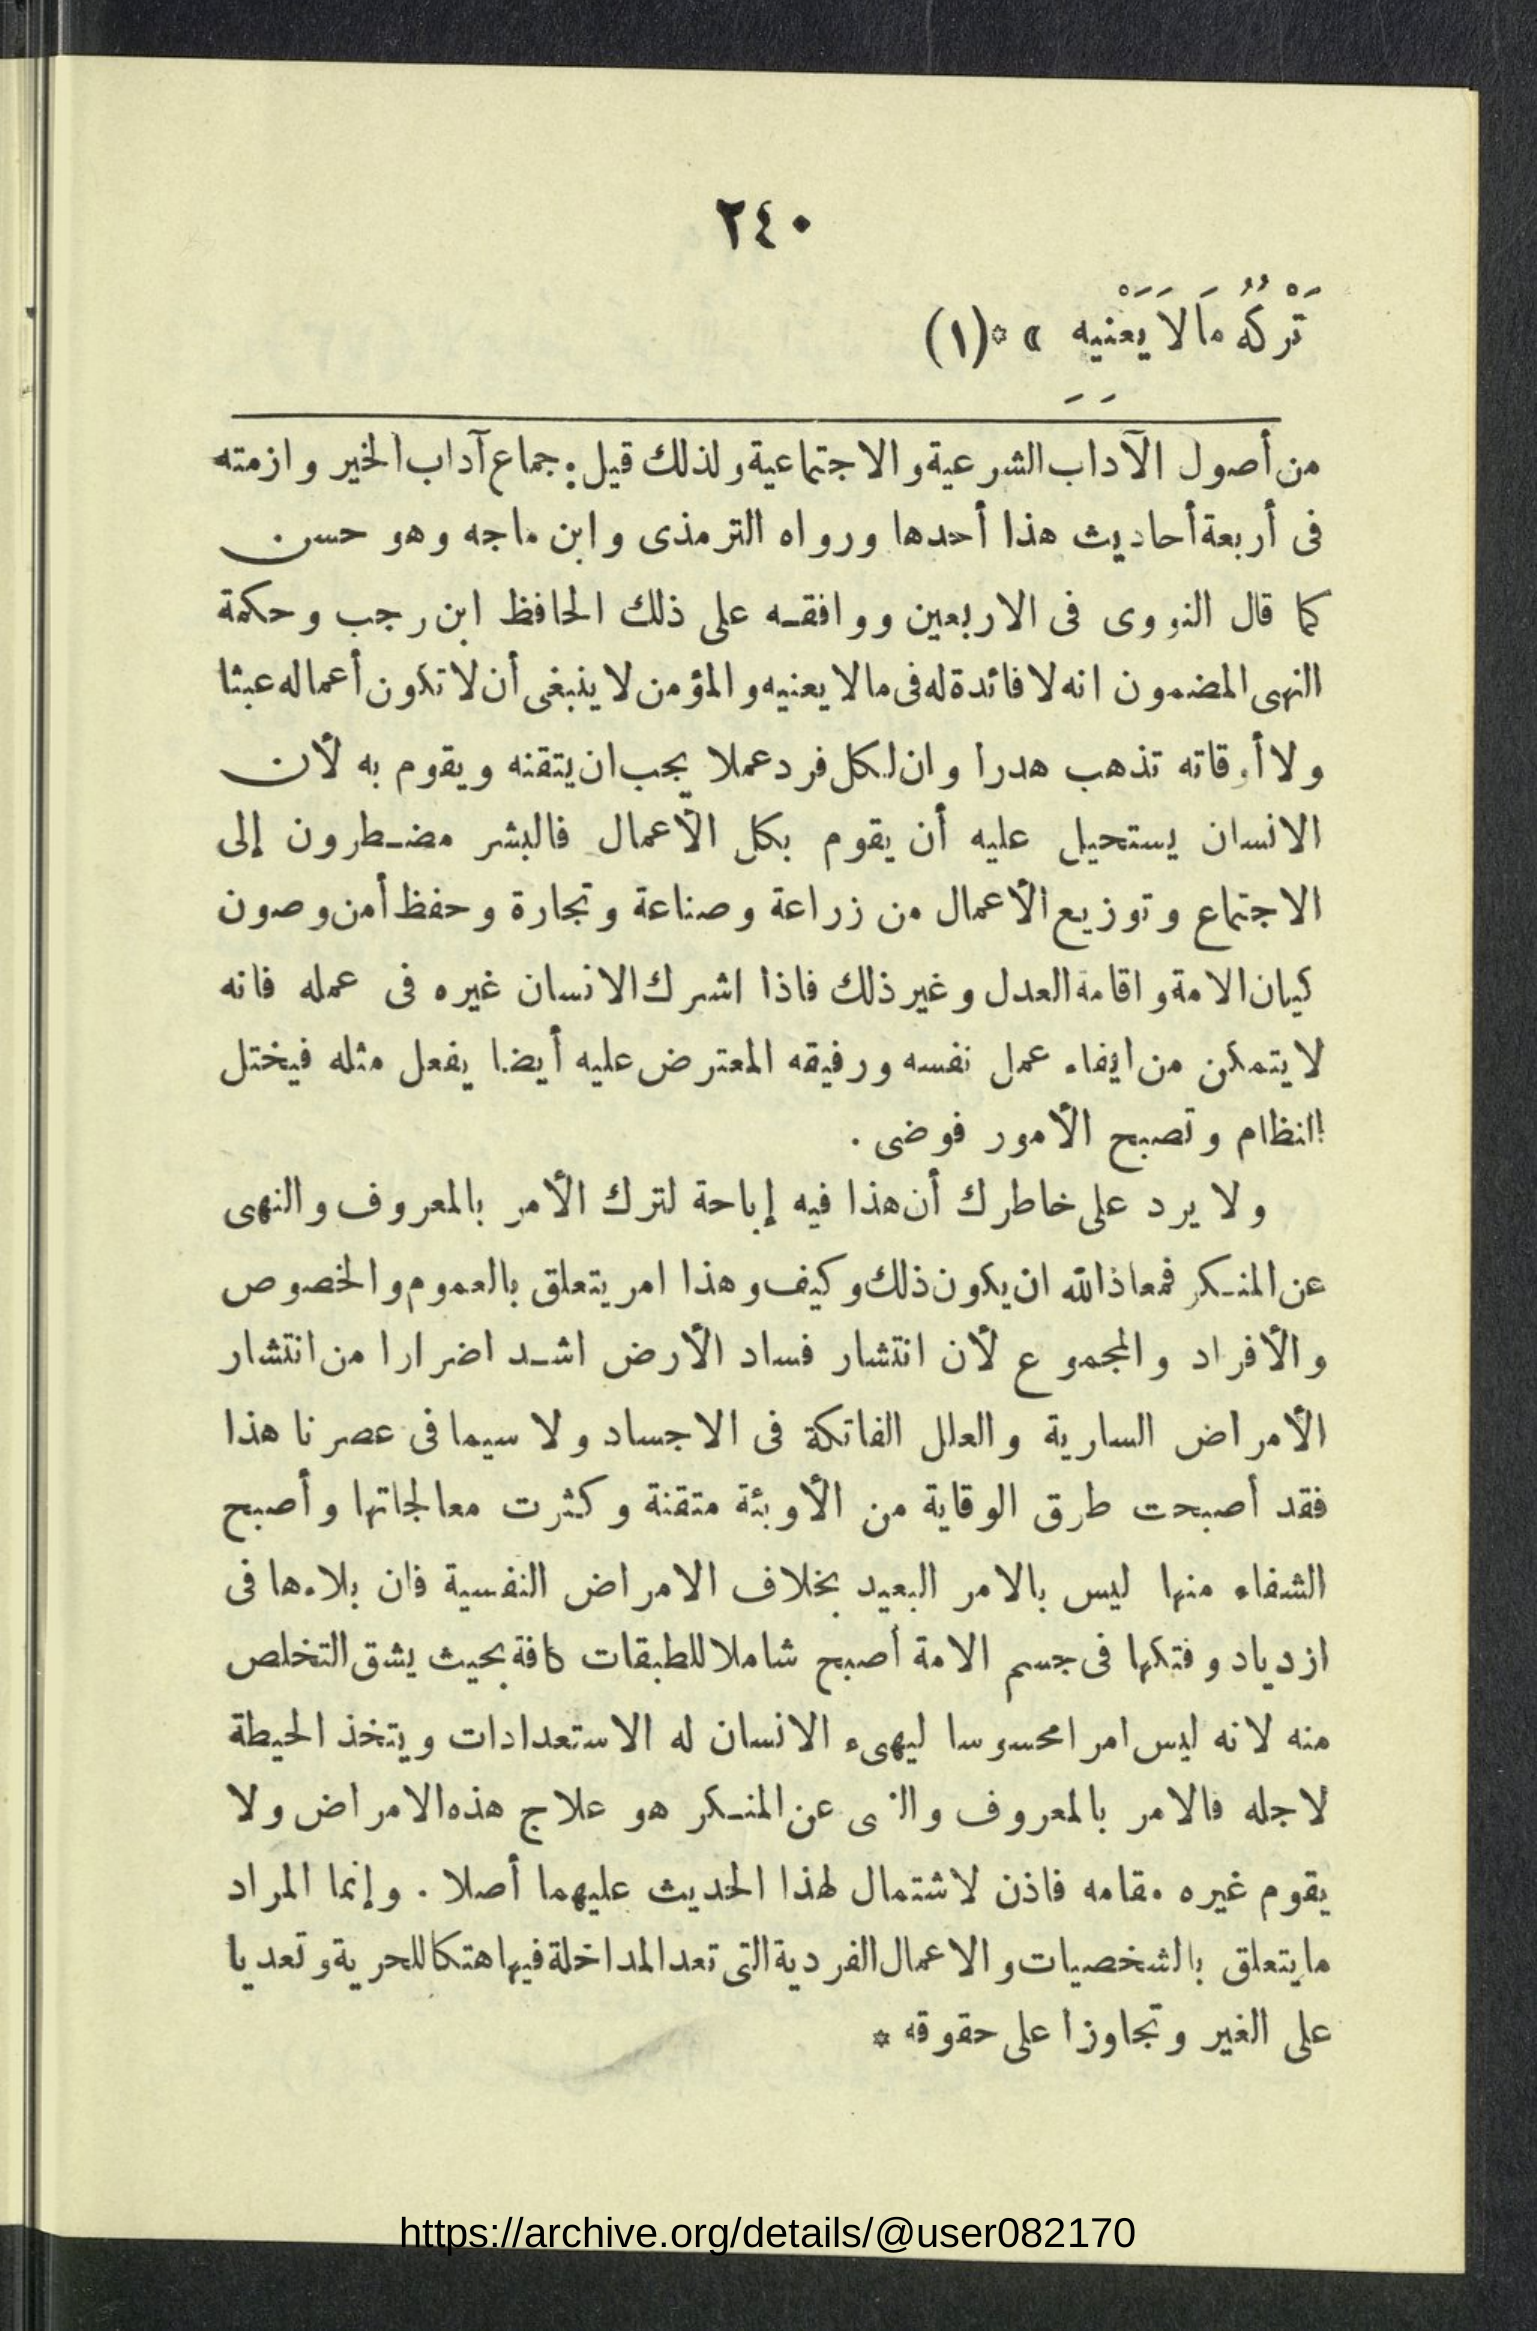 ٢٤٠
تَرْكُهُ مَا لَا يَعْنِيهِ » * (١)
من أصول الآداب الشرعية والاجتماعية ولذلك قيل : جماع آداب الخير وازمته
فى أربعة أحاديث هذا أحدها ورواه الترمذى وابن ماجه وهو حسن
كما قال النووى فى الاربعين ووافقه على ذلك الحافظ ابن رجب وحكمة
النهى المضمون انه لا فائدة له فى ما لا يعنيه والمؤمن لا ينبغى أن لا تكون أعماله عبثا
ولا أوقاته تذهب هدرا وان لكل فرد عملا يجب ان يتقنه ويقوم به لأن
الانسان يستحيل عليه أن يقوم بكل الأعمال فالبشر مضطرون إلى
الاجتماع وتوزيع الأعمال من زراعة وصناعة وتجارة وحفظ أمن وصون
كيان الامة واقامة العدل وغير ذلك فاذا اشرك الانسان غيره فى عمله فانه
لا يتمكن من ايفاء عمل نفسه ورفيقه المعترض عليه أيضا يفعل مثله فيختل
النظام وتصبح الأمور فوضى .
ولا يرد على خاطرك أن هذا فيه إباحة لترك الأمر بالمعروف والنهى
عن المنكر فمعاذ الله ان يكون ذلك وكيف وهذا امر يتعلق بالعموم والخصوص
والأفراد والمجموع لأن انتشار فساد الأرض اشد اضرارا من انتشار
الأمراض السارية والعلل الفاتكة فى الاجساد ولا سيما فى عصرنا هذا
فقد أصبحت طرق الوقاية من الأوبئة متقنة وكثرت معالجاتها وأصبح
الشفاء منها ليس بالامر البعيد بخلاف الامراض النفسية فان بلاءها فى
ازدياد وفتكها فى جسم الامة أصبح شاملا للطبقات كافة بحيث يشق التخلص
منه لانه ليس امرا محسوسا ليهىء الانسان له الاستعدادات ويتخذ الحيطة
لاجله فالامر بالمعروف والنهى عن المنكر هو علاج هذه الامراض ولا
يقوم غيره مقامه فاذن لا شتمال لهذا الحديث عليهما أصلا . وإنما المراد
ما يتعلق بالشخصيات والاعمال الفردية التى تعد المداخلة فيها هتكا للحرية وتعديا
على الغير وتجاوزا على حقوقه *
https://archive.org/details/@user082170